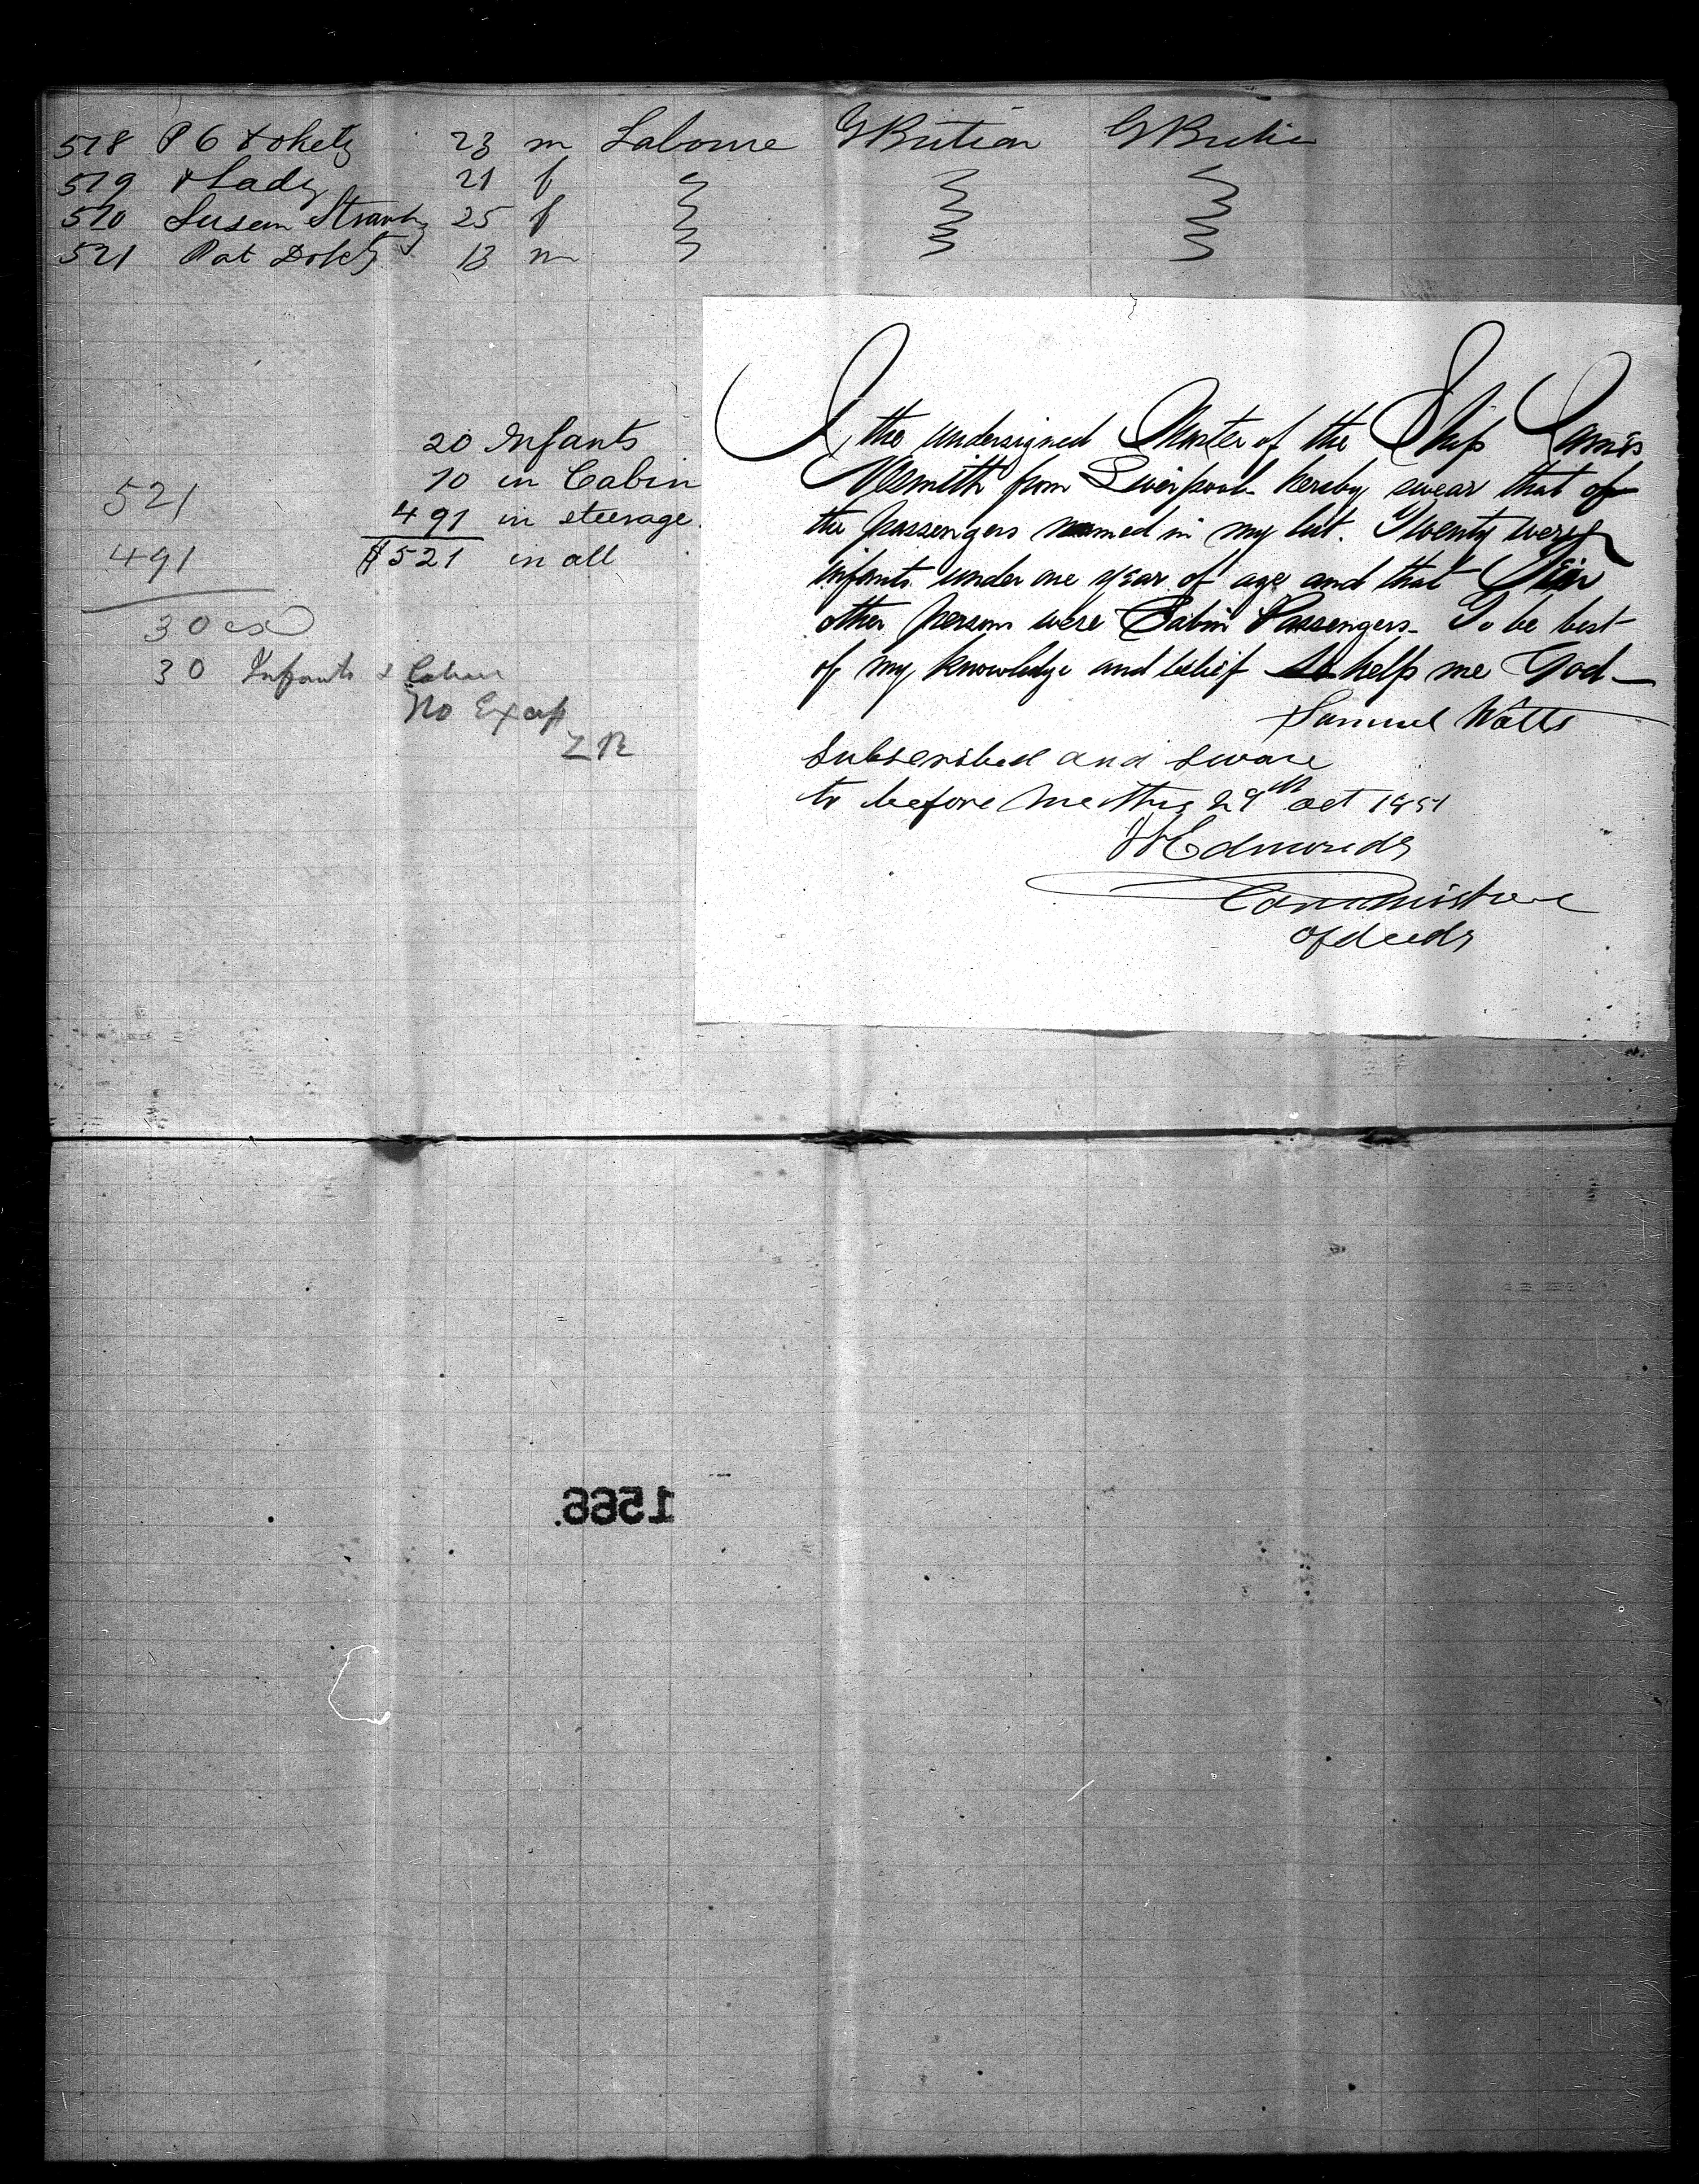 518 P G Dohety 23 m Laboure G Britian G Britia
519 & Lady 21 f
510 Susan 25 f
521 Pat Dohety 13 m
20 Infants
10 in Cabin
491 in steerage
$521 in all
521
491
30 ex
30 Infants & Cabin
No Excep
I, the undersigned Master of the Ship James
Nesmith from Liverpool hereby swear that of
the passengers named in my list. Twenty were
infants under one year of age and that
other person were Cabin Passengers. To be best
of my knowledge and belief So help me God
Samuel Watts
Subscribed and swore
to before me this 29th oct 1851
Edmonds
Commissioner
of deeds
1566.